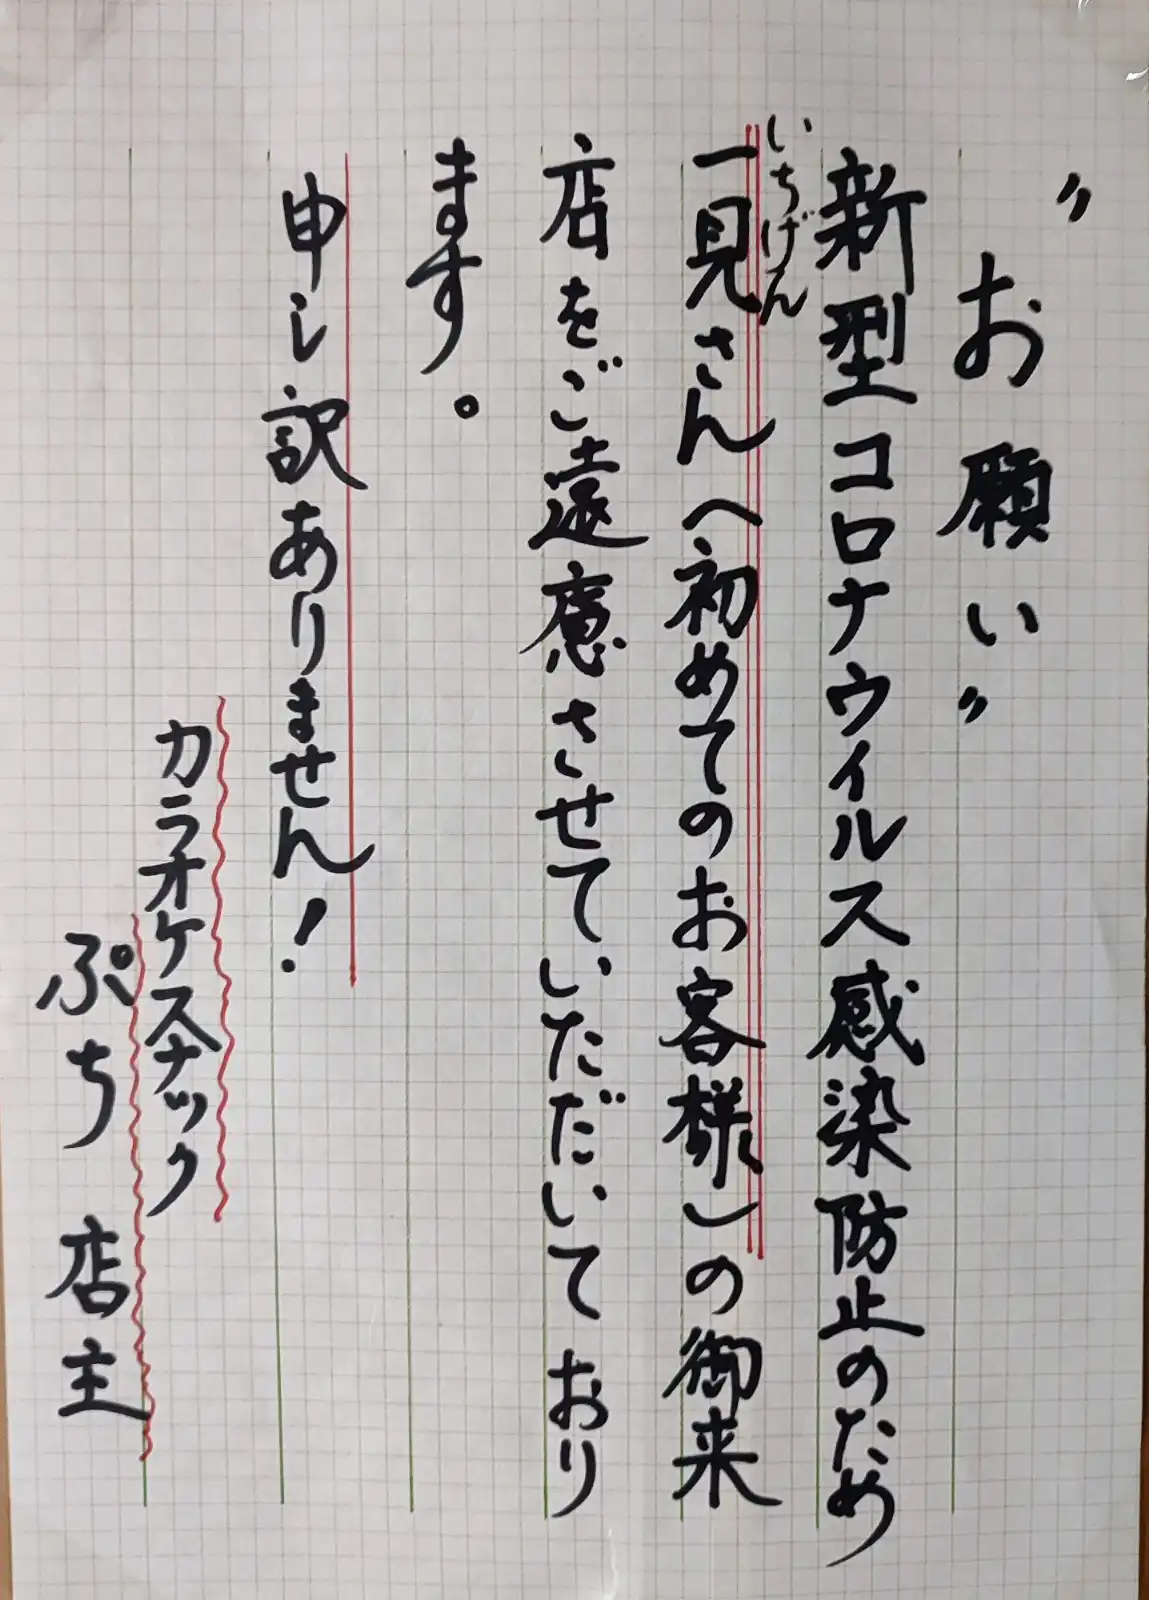 〃お願い〃
新型コロナウイルス感染防止のため
いちげん
一見さんへ初めてのお客様しの御来
店をご遠慮させていただいており
ます。
申し訳ありません!
カラオケスナック
ぷち 店主